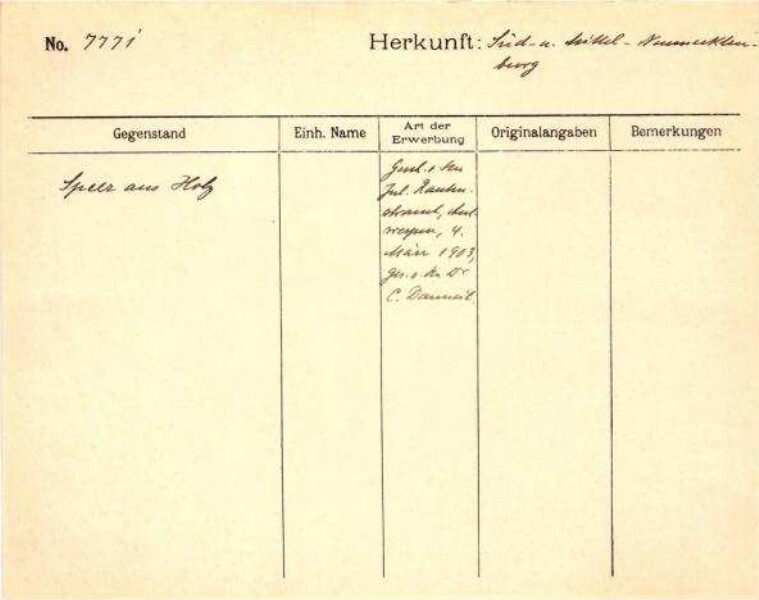 No. 7771
Herkunft: Süd- u. Mittel-Neumecklen-
burg
Gegenstand
Einh. Name
Art der
Erwerbung
Originalangaben
Bemerkungen
Speer aus Holz
Gesch. v. Hn
Jul. Rauten-
strauch, Ant-
werpen, 4.
März 1903,
ges. v. Hn Dr
C. Danneil.